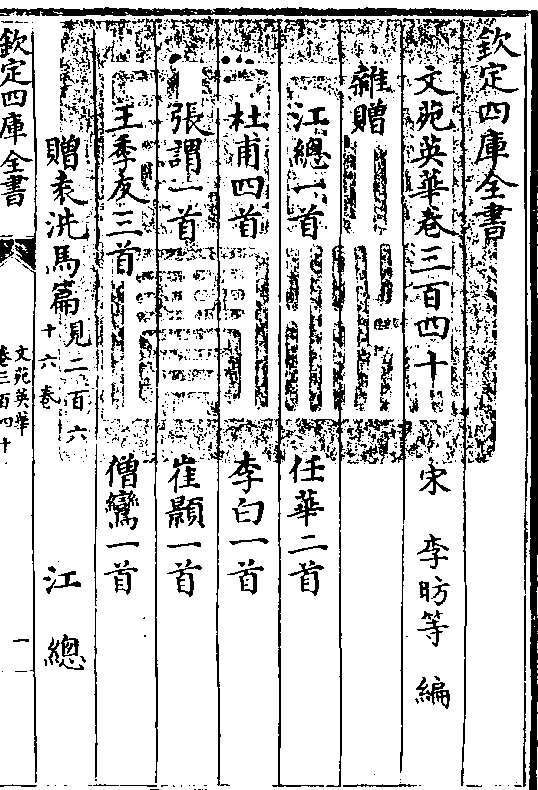 欽定四庫全書
文苑英華卷三百四十
宋 李昉等 編
雜贈
江總一首 任華二首
杜甫四首 李白一首
張謂一首 崔顥一首
王季友三首 僧鸞一首
贈袁洗馬篇見二百六十六卷 江總
欽定四庫全書
文苑英華
卷三百四十
一